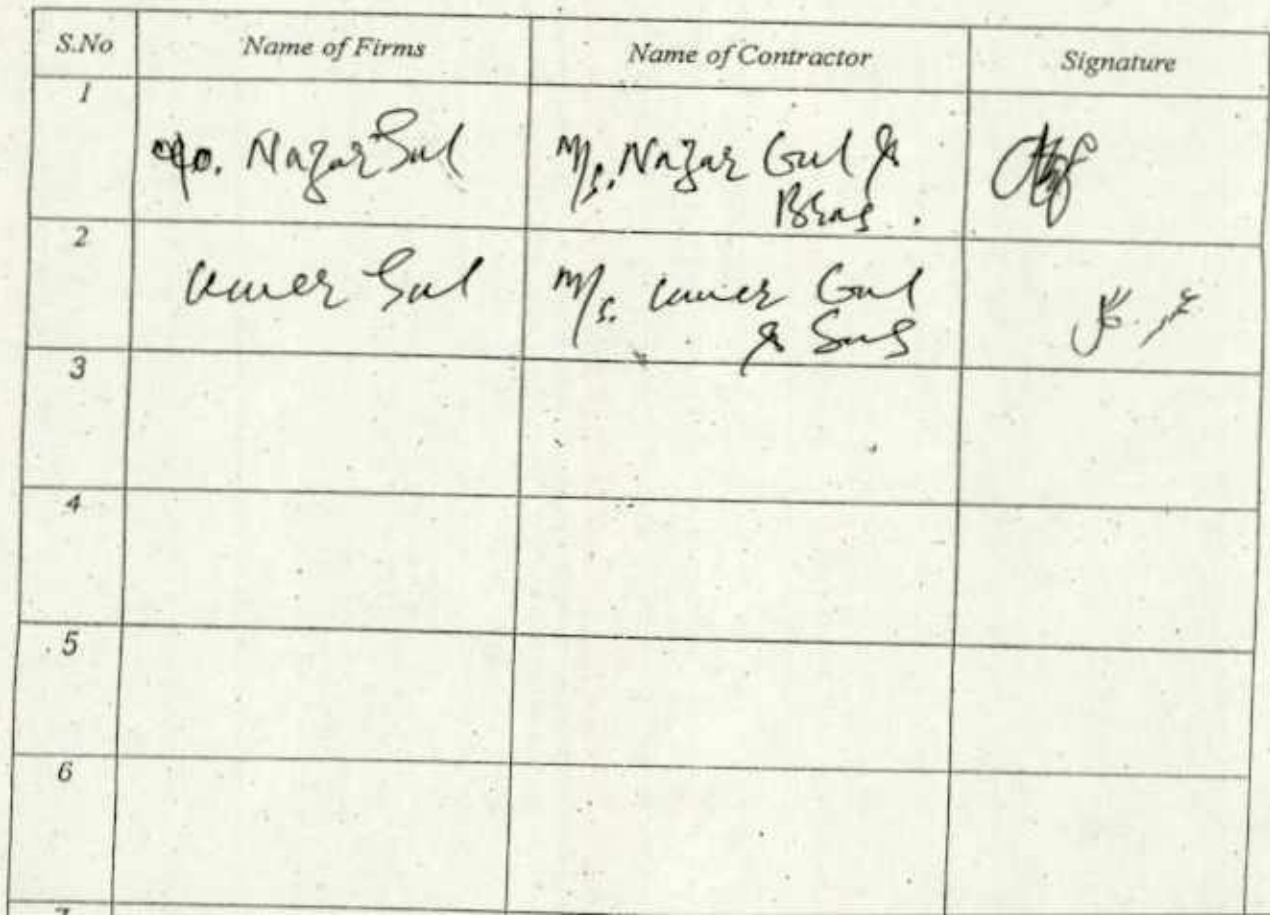 S.No Name of Firms Name of Contractor Signature
1
Nazar Gul M/s. Nazar Gul &
Bros.
2
Umer Gul M/s. Umer Gul
& Sons
3
4
5
6
7